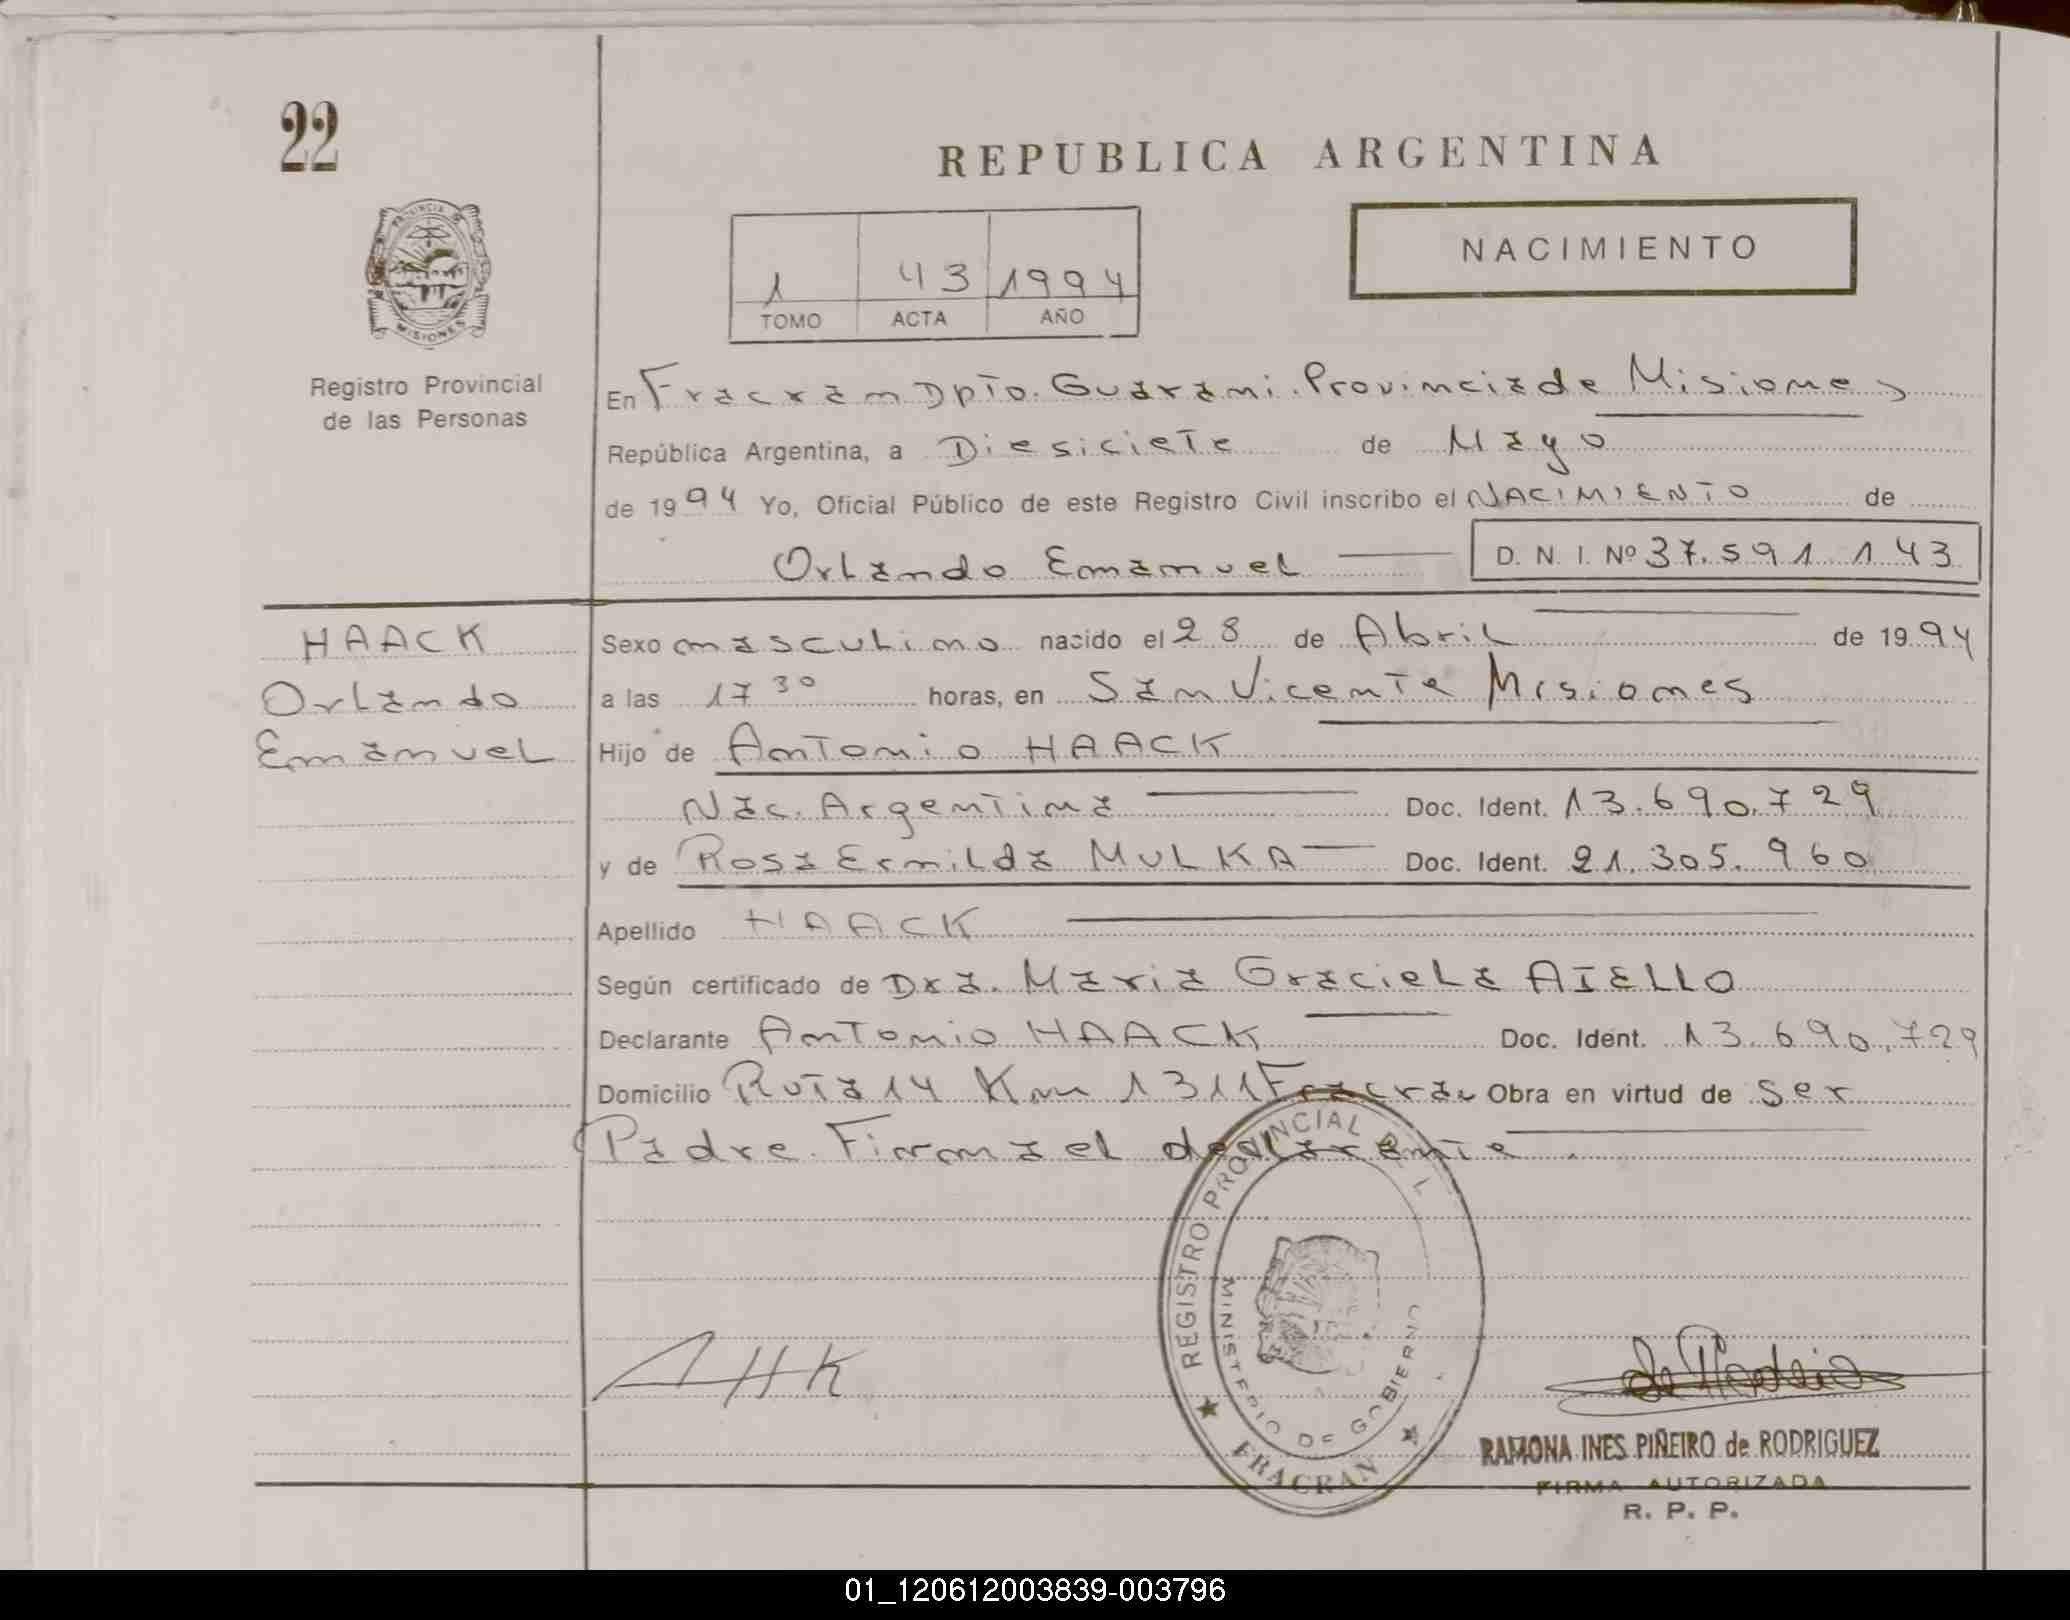 22
REPUBLICA ARGENTINA
PROVINCIA DE
MISIONES
1 43 1994
TOMO ACTA AÑO
NACIMIENTO
Registro Provincial
de las Personas
En Fracran Dpto. Guarani. Provincia de Misiones
República Argentina, a Diesiciete de Mayo
de 1994 Yo, Oficial Público de este Registro Civil inscribo el NACIMIENTO de
Orlando Emanuel D. N. I. Nº 37.591.143
HAACK
Orlando
Emanuel
Sexo masculino nacido el 28 de Abril de 1994
a las 17 30 horas, en San Vicente Misiones
Hijo de Antonio HAACK
Nac. Argentina Doc. Ident. 13.690.729
y de Rosa Ermilda MULKA Doc. Ident. 21.305.960
Apellido HAACK
Según certificado de Dra. Maria Graciela AIELLO
Declarante Antonio HAACK Doc. Ident. 13.690.729
Domicilio Ruta 14 Km 1311 Fracran Obra en virtud de ser
Padre. Firma el declarante.
REGISTRO PROVINCIAL
MINISTERIO DE GOBIERNO
FRACRAN
AHK
RAMONA INES PIÑEIRO de RODRIGUEZ
FIRMA AUTORIZADA
R. P. P.
01_120612003839-003796